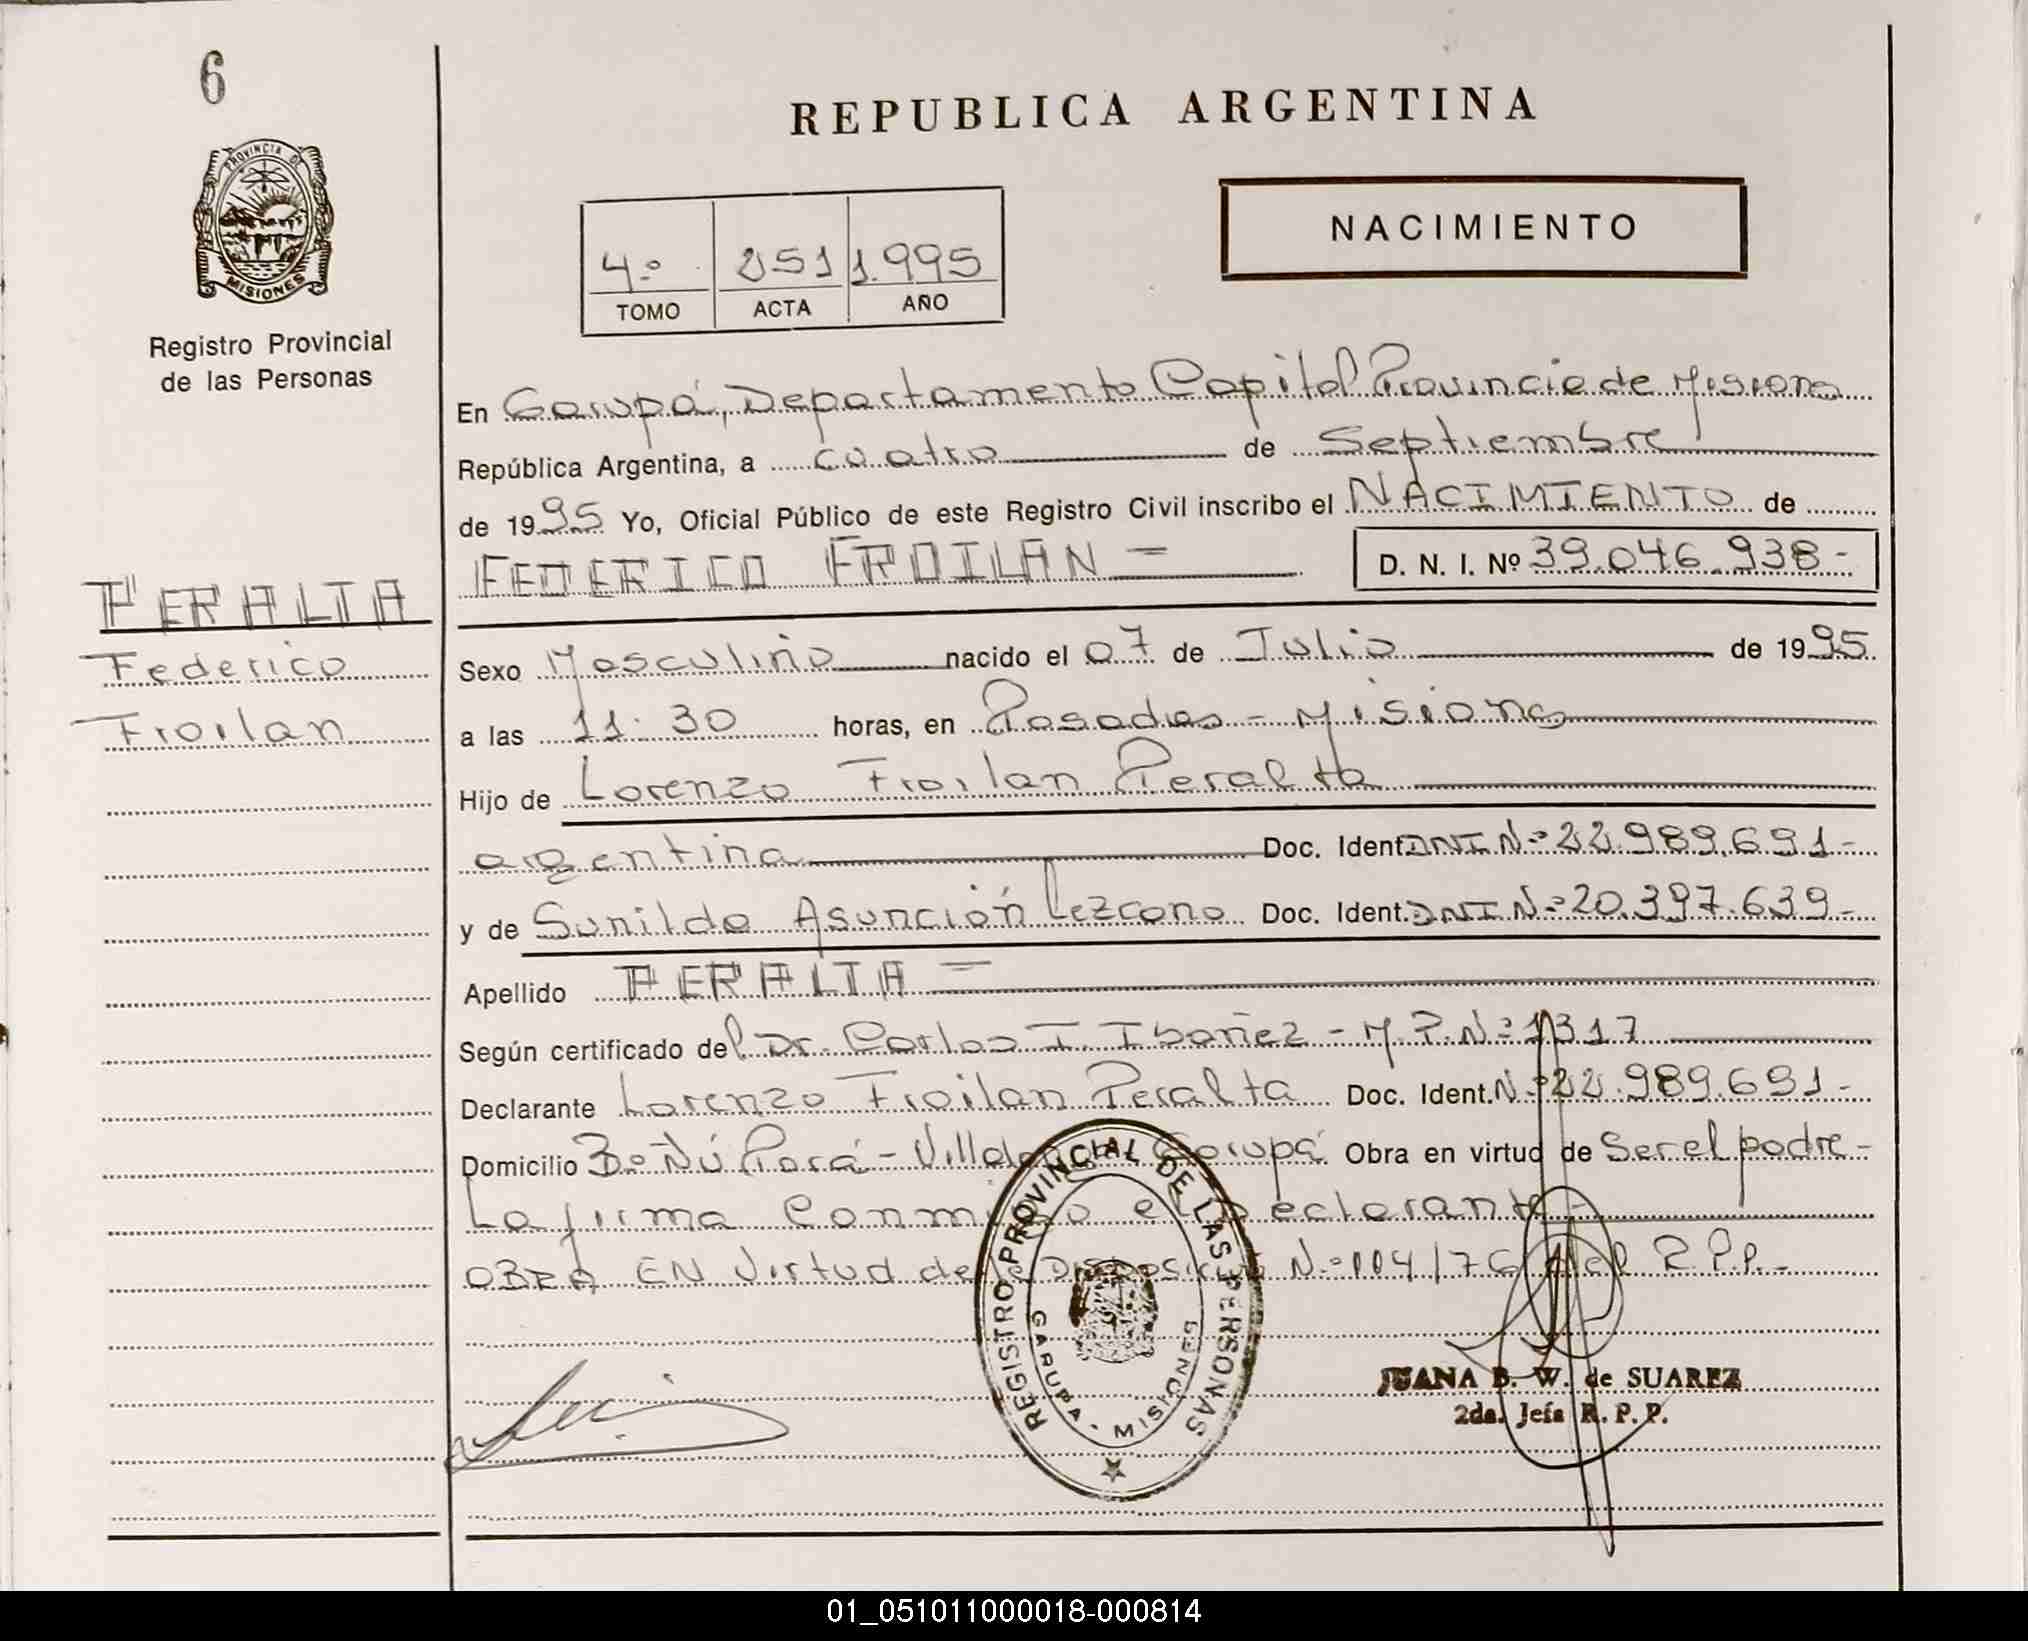 6
REPUBLICA ARGENTINA
PROVINCIA DE
MISIONES
Registro Provincial
de las Personas
NACIMIENTO
4º 251 1.995
TOMO ACTA AÑO
En Garupá, Departamento Capital Provincia de Misiones
República Argentina, a cuatro de Septiembre
de 1995 Yo, Oficial Público de este Registro Civil inscribo el NACIMIENTO de
FEDERICO FROILAN = D. N. I. Nº 39.046.938-
PERALTA
Federico
Froilan
Sexo Masculino nacido el 07 de Julio de 1995
a las 11:30 horas, en Posadas - Misiones
Hijo de Lorenzo Froilan Peralta
argentina Doc. Ident. DNI Nº 22.989.691-
y de Sunilda Asunción Lezcano Doc. Ident. DNI Nº 20.397.639-
Apellido PERALTA =
Según certificado del Dr. Carlos I. Ibañez - M.P.Nº 1317
Declarante Lorenzo Froilan Peralta Doc. Ident. Nº 22.989.691-
Domicilio Bº Ñú Porá - Garupá Obra en virtud de Ser el padre-
La firma Conmigo el Declarante-
OBRA EN Virtud de la Disposición Nº 004/76 del R.P.P.-
REGISTRO PROVINCIAL DE LAS PERSONAS
GARUPA - MISIONES
JUANA B. W. de SUAREZ
2da. Jefa R. P. P.
01_051011000018-000814